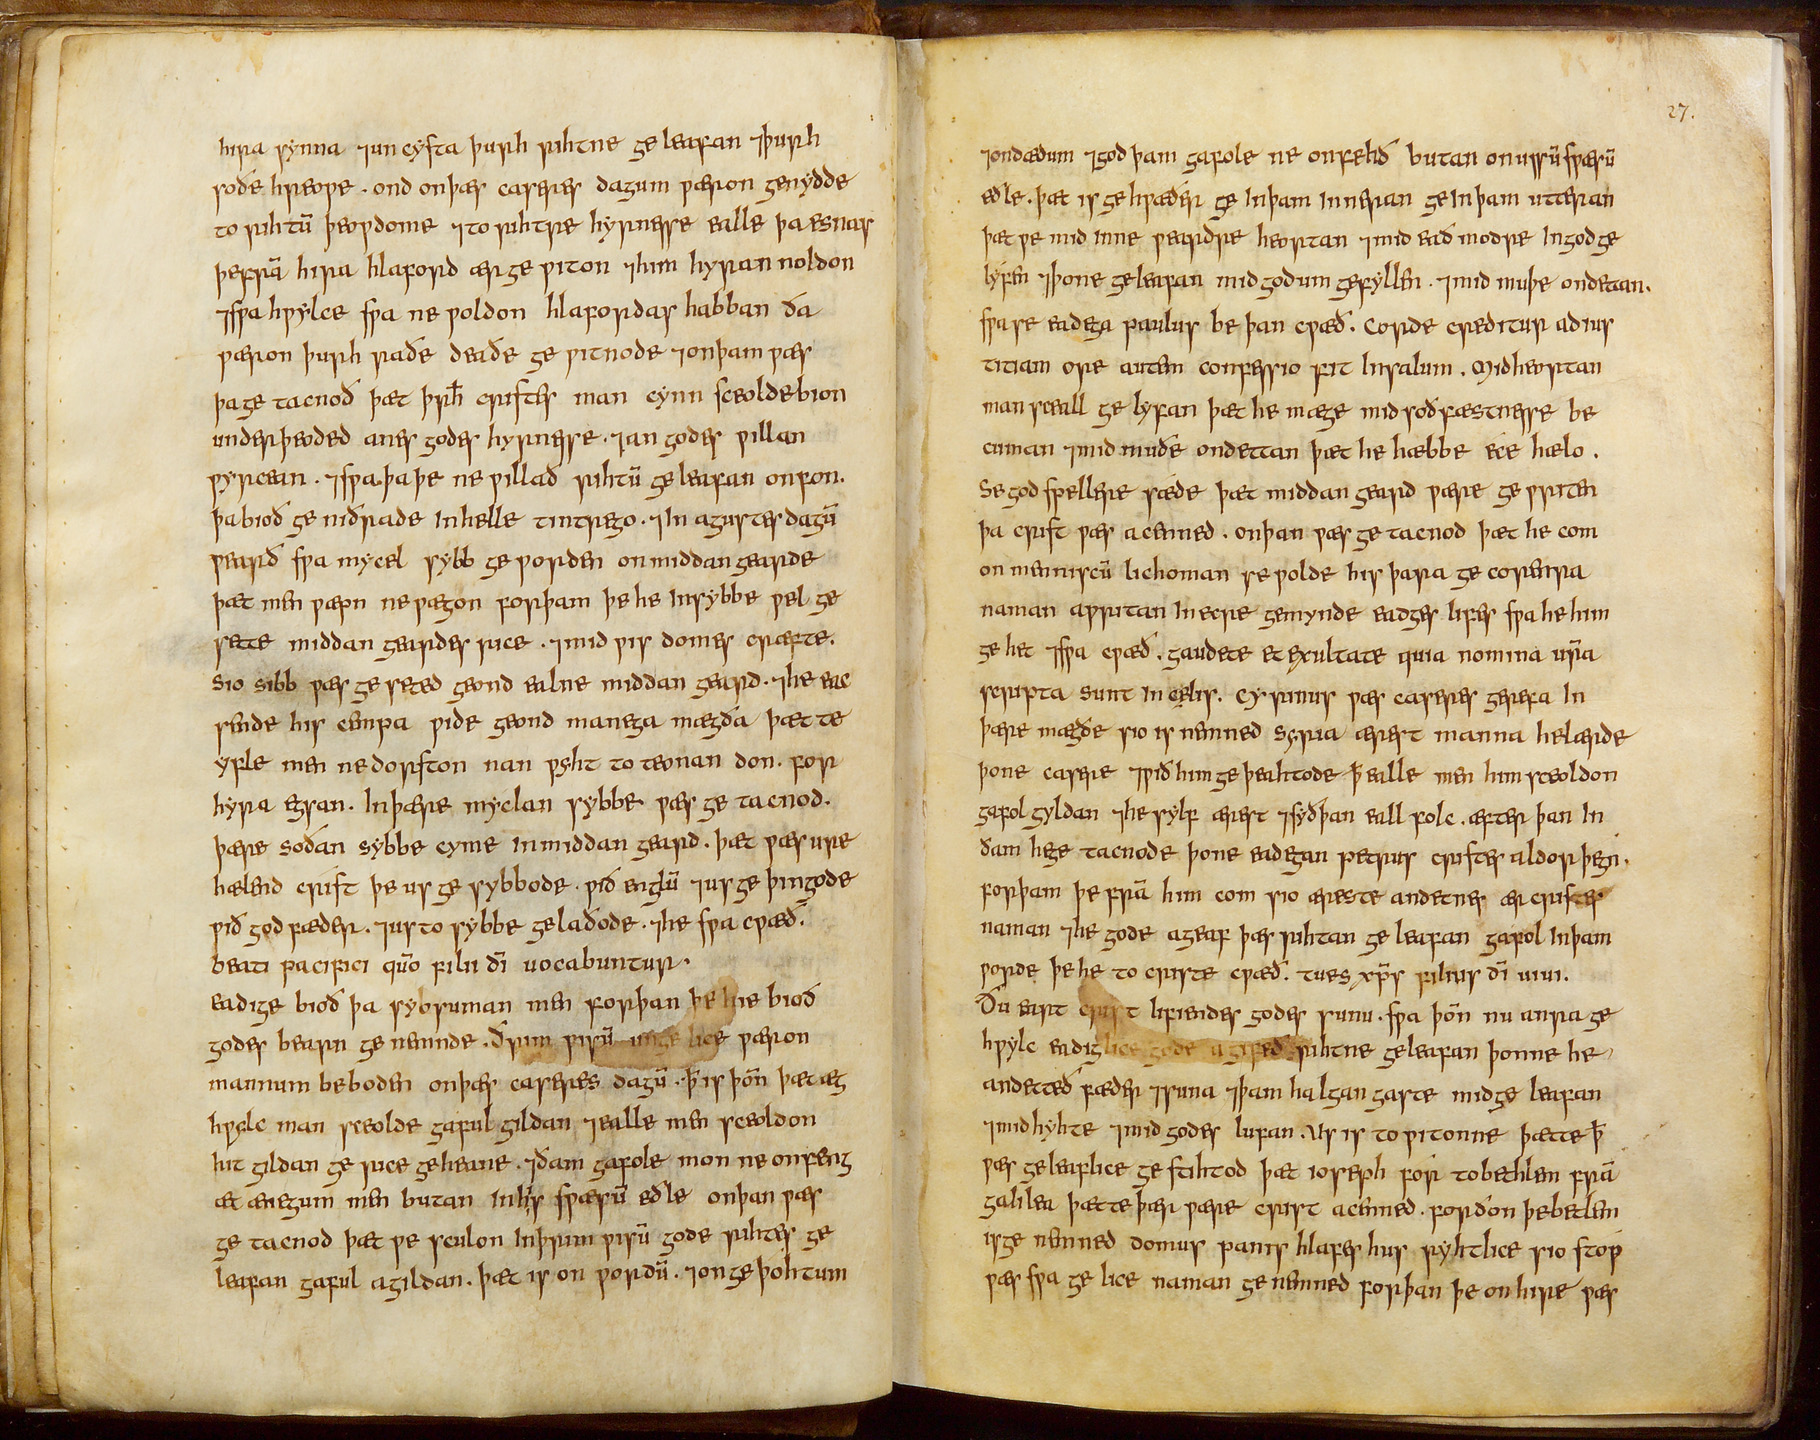 hira synna ⁊ uncysta þurh rihtne geleafan ⁊ þurh
soðe hreowe . ond on þæs caseres dagum wæron genydde
to rihtū þeowdome ⁊ to rihtre hyrnesse ealle þa esnas
þe frā hira hlaford ær gewiton ⁊ him hyran noldon
⁊ swa hwylce swa ne woldon hlafordas habban ða
wæron þurh rade deade gewitnode ⁊ on þam wæs
þa getacnod þæt þurh cristes man cynn sceolde bion
underþeoded anes godes hyrnesse . ⁊ an godes willan
wyrcean . ⁊ swa þa þe ne willað rihtū geleafan onfon .
þa bioð geniðrade in helle tintrego . ⁊ in agustes dagū
wearð swa mycel sybb geworden on middangearde
þæt men wæpn ne wægon forþam þe he in sybbe wel ge
sette middangeardes rice . ⁊ mid wisdomes cræfte .
Sio sibb wæs geseted geond ealne middangeard . ⁊ he eac
sende his cempa wide geond manega mægða þæt te
yfle men ne dorston nan wyht to teonan don . for
hyra egsan . In þære myclan sybbe wæs getacnod .
þære soðan sybbe cyme in middangeard . þæt wæs ure
hælend crist þe us gesybbode . wið englū ⁊ us geþingode
wið godfæder . ⁊ us to sybbe gelaðode . ⁊ he swa cwæð .
beati pacifici quō filii dī uocabuntur .
eadige bioð þa sybsuman men forþan þe hie bioð
godes bearn genemnde . Ðrim wisū ungelice wæron
mannum beboden on þæs caseres dagū . ꝥ is þōn þæt æg
hwylc man sceolde gaful gildan ⁊ ealle men sceoldon
hit gildan ge rice ge heane . ⁊ ðam gafole mon ne onfeng
æt ænegum men butan in his swæsū eðle on þan wæs
getacnod þæt we sculon in þrim wisū gode rihtes ge
leafan gaful agildan . þæt is on wordū . ⁊ on geþohtum
27.
⁊ on dædum ⁊ god þam gafole ne onfehð butan on ussū swæsū
eðle . þæt is gehwæðer ge in þam inneran ge in þam utteran
þæt we mid inneweardre heortan ⁊ mid eadmodre in god ge
lyfen ⁊ þone geleafan mid godum gefyllen . ⁊ mid muþe ondetan .
swa se eadega paulus be þan cwæð . Corde creditur ad ius
titiam ore autem confessio fit in salum . Mid heortan
man sceall gelyfan þæt he mæge mid soðfæstnesse be
cuman ⁊ mid muðe ondettan þæt he hæbbe ece hælo .
Se godspellere sæde þæt middangeard wære gewriten
þa crist wæs acenned . on þan wæs getacnod þæt he com
on menniscū lichoman se wolde his þara gecorenra
naman awritan in ecre gemynde eadges lifes swa he him
gehet ⁊ swa cwæð . gaudete et exultate quia nomina urā
scripta sunt in celis . Cyrinus wæs caseres gerefa in
þære mægðe sio is nemned syria ærest manna he lærde
þone casere ⁊ wið him geþeahtode ꝥ ealle men him sceoldon
gafol gyldan ⁊ he sylf ærest ⁊ syðþan eall folc . æfter þan in
ðam he getacnode þone eadegan petrus cristes aldorþegn .
forþam þe frā him com sio æreste andetnes ær cristes
naman ⁊ he gode ageaf þæs rihtan geleafan gafol in þam
worde þe he to criste cwæð . tu es xp̄s filius dī uiui .
Ðu eart crist lifiendes godes sunu . swa þōn nu anra ge
hwylc eadiglice gode agifeð rihtne geleafan þonne he
andetteð fæder ⁊ suna ⁊ þam halgan gaste mid geleafan
⁊ mid hyhte ⁊ mid godes lufan . Us is to witonne þætte ꝥ
wæs geleaflice gestihtod þæt ioseph for to bethlem frā
galilea þætte þær wære crist acenned . forðon þe betlem
is genemned domus panis hlafes hus ryhtlice sio stow
wæs swa gelice naman genemned forþan þe on hire wæs